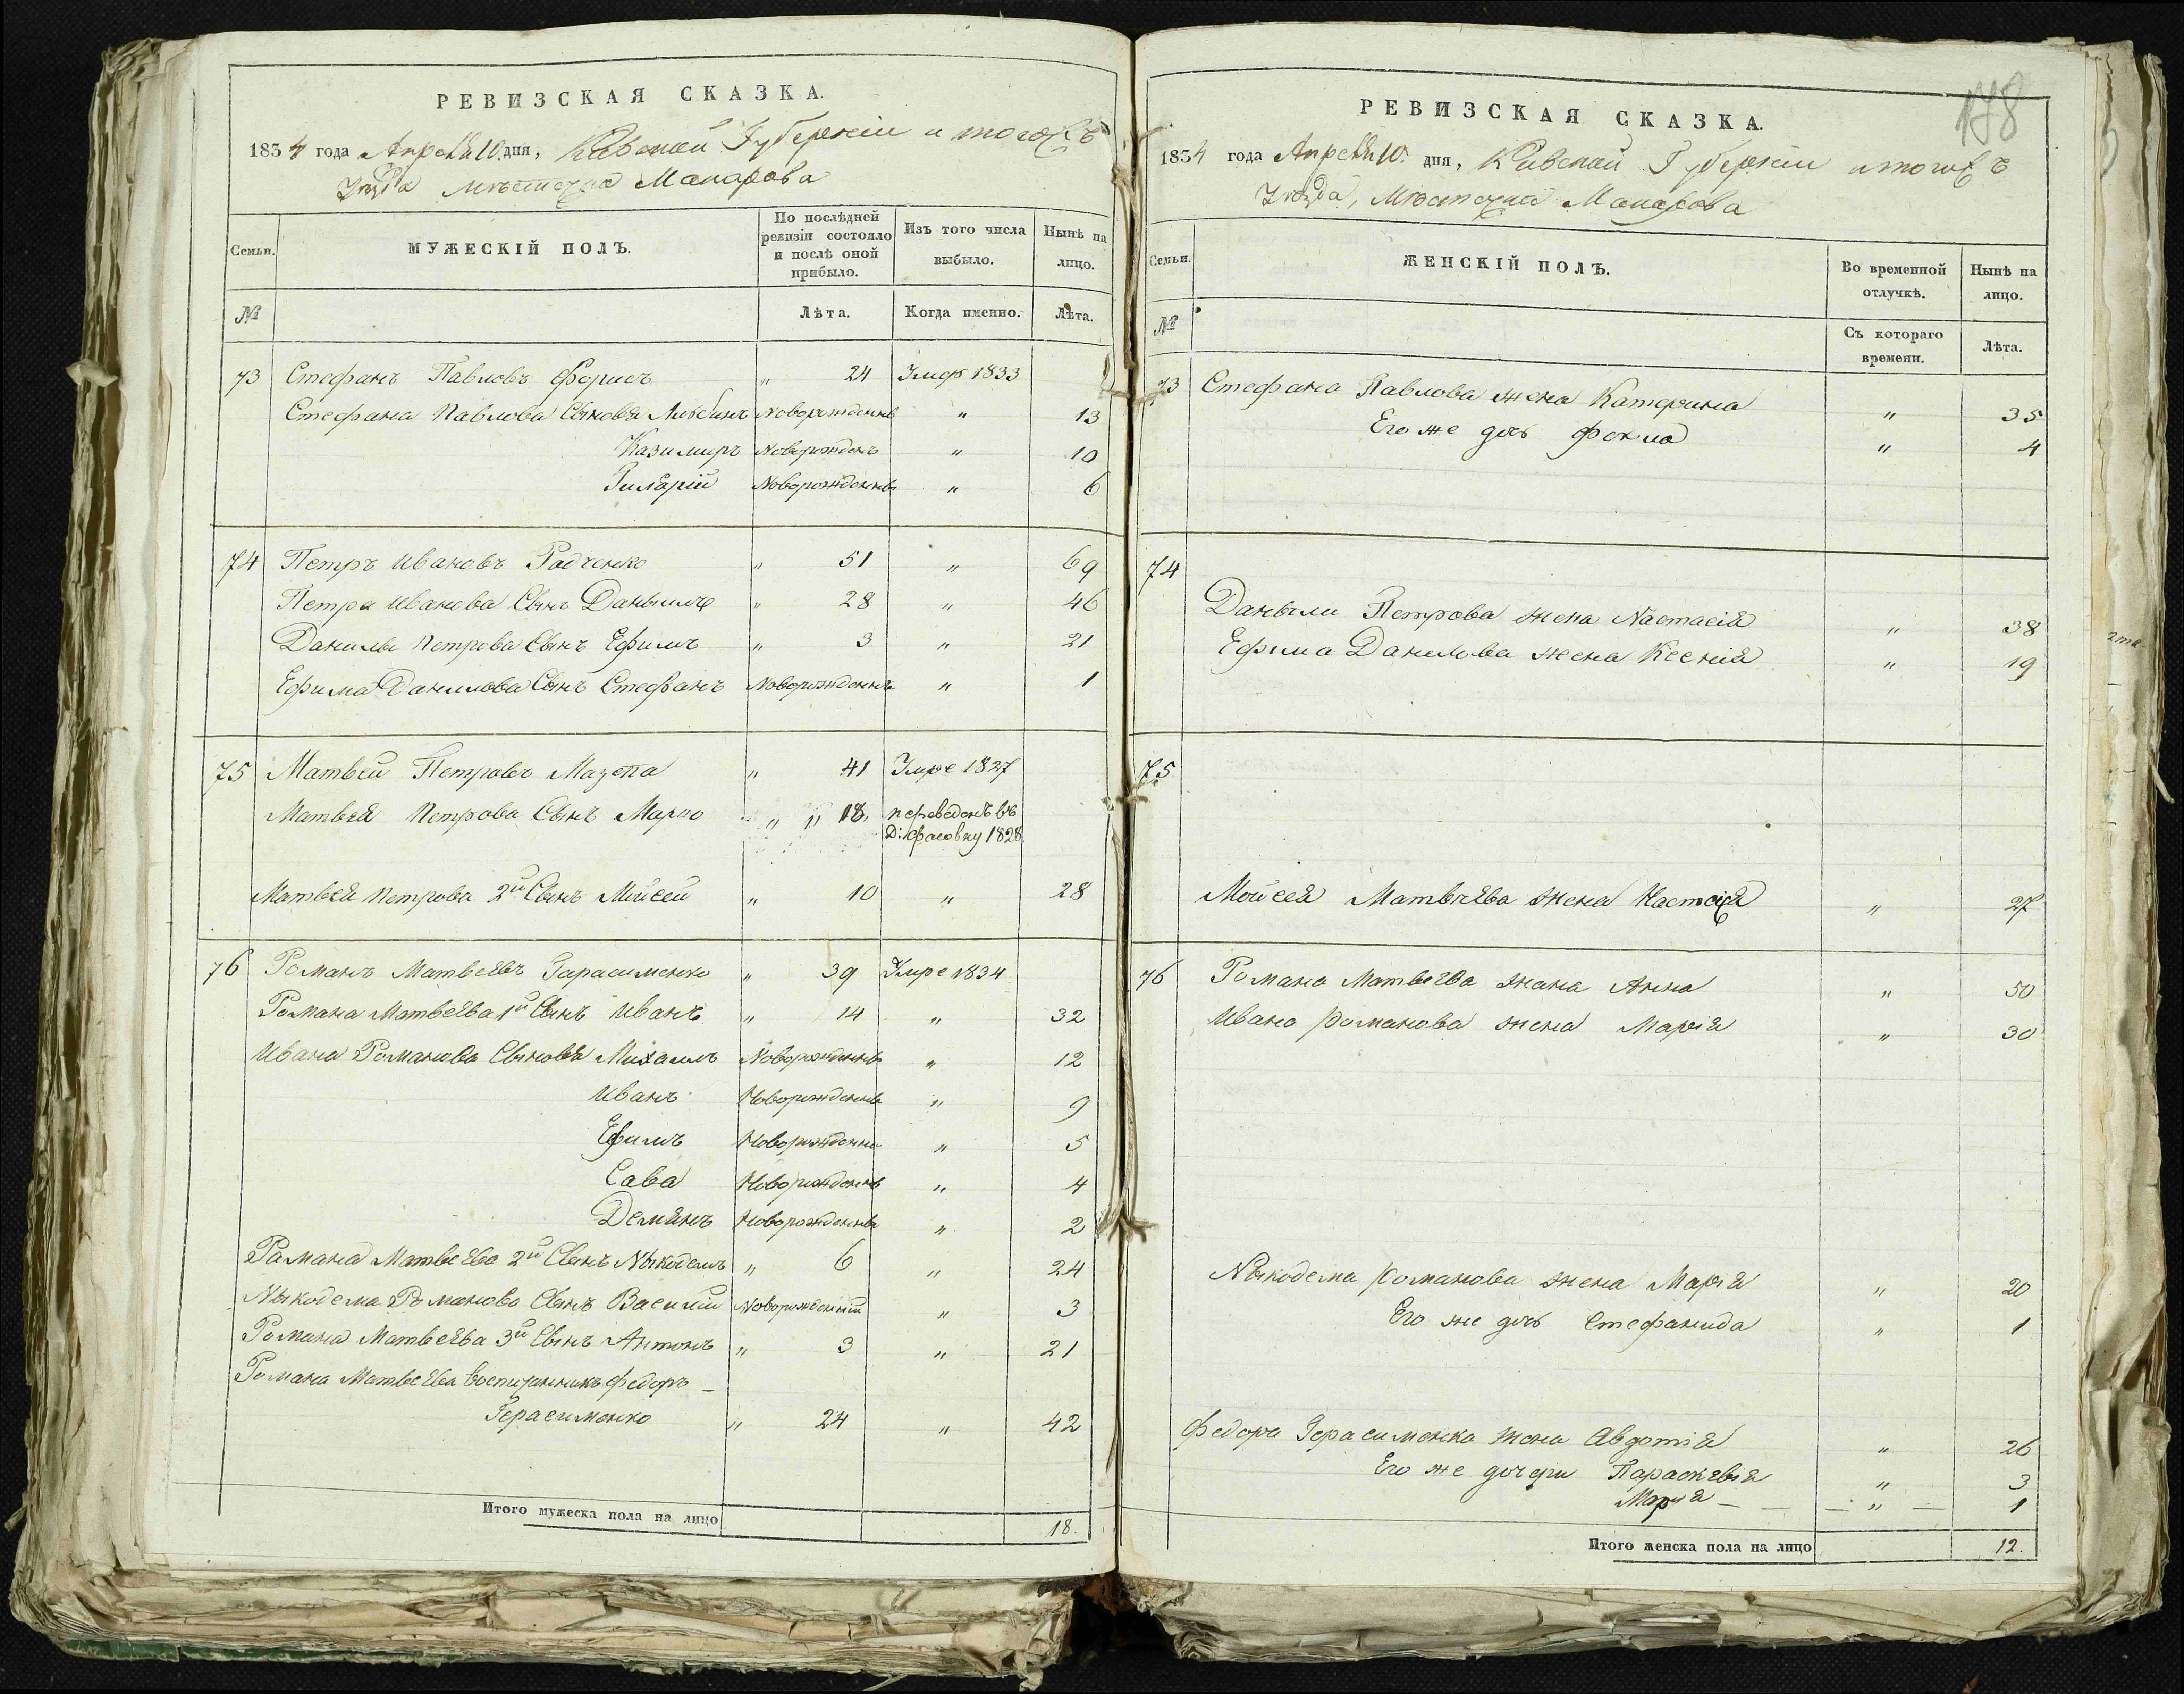 РЕВИЗСКАЯ СКАЗКА.
1834 года Апреля 10. дня, Киевской Губернiи и тогожъ
Уѣзда мѣстечка Макарова
Семьи.
МУЖЕСКІЙ ПОЛЪ.
По послѣдней ревизіи состояло и послѣ оной прибыло.
Изъ того числа выбыло.
Нынѣ на лицо.
№
Лѣта.
Когда именно.
Лѣта.
73 Стефанъ Павловъ " 24 Умер 1833
Стефана Павлова Сыновья Новорожденнъ " 13
Казимиръ Новорожденъ " 10
Гиларій Новорожденнъ " 6
74 Петръ Ивановъ Радченко " 51 " 69
Петра Иванова Сынъ Даныило " 28 " 46
Данилы Петрова Сынъ Ефимъ " 3 " 21
Ефима Данилова Сынъ Стефанъ Новорожденнъ " 1
75 Матвей Петровъ Мазепа " 41 Умре 1827
Матвея Петрова Сынъ Марко " " 18. переведенъ въ
Д: 1828
Матвея Петрова 2й Сынъ Мойсей " 10 " 28
76 Романъ Матвеевъ Гарасименко " 39 Умре 1834
Романа Матвеева 1й Сынъ Иванъ " 14 " 32
Ивана Романова Сыновья Михаилъ Новорожденнъ " 12
Иванъ Новорожденнъ " 9
Ефимъ Новорожденнъ " 5
Сава Новорожденнъ " 4
Демянъ Новорожденнъ " 2
Рамана Матвеева 2й Сынъ Ныкодемъ " 6 " 24
Ныкодема Романова Сынъ Василiй Новорожденный " 3
Романа Матвеева 3й Сынъ Антонъ " 3 " 21
Романа Матвеева воспитанникъ Федоръ –
Герасименко " 24 " 42
Итого мужеска пола на лицо 18.
178
РЕВИЗСКАЯ СКАЗКА.
1834 года Апреля 10. дня, Киевской Губернiи итогожъ
Уѣзда, Мѣстечка Макарова
Семьи.
ЖЕНСКІЙ ПОЛЪ.
Во временной отлучкѣ.
Нынѣ на лицо.
№
Съ котораго времени.
Лѣта.
73 Стефана Павлова жена Катерина " 35
Его же дочь Фекла " 4
74
Даныли Петрова жена Настасія " 38
Ефима Данилова жена Ксенія " 19
75
Мойсея Матвѣева жена Настасія " 27
76 Романа Матвеева жана Анна " 50
Ивана Романова жена Марія " 30
Ныкодема Романова жена Марія " 20
Его же дочь Стефанида " 1
Федора Герасименка жена Авдотія " 26
Его же дочери Параскевія " 3
Марія – – – " – 1
Итого женска пола на лицо 12.